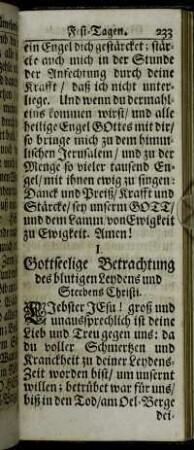 Fest-Tagen. 233
ein Engel dich gestärcket; stär-
cke auch mich in der Stunde
der Anfechtung durch deine
Krafft / daß ich nicht unter-
liege. Und wenn du dermahl-
eins kommen wirst / und alle
heilige Engel GOttes mit dir /
so bringe mich zu dem himm-
lischen Jerusalem / und zu der
Menge so vieler tausend En-
gel / mit ihnen ewig zu singen:
Danck und Preiß / Krafft und
Stärcke / sey unserm GOTT /
und dem Lamm von Ewigkeit
zu Ewigkeit. Amen!
I.
Gottseelige Betrachtung
des blutigen Leydens und
Sterbens Christi.
LJebster JEsu! groß und
unaussprechlich ist deine
Lieb und Treu gegen uns: da
du voller Schmertzen und
Kranckheit zu deiner Leydens-
Zeit worden bist / um unsernt
willen; betrübet war für uns /
biß in den Tod / am Oel-Berge
dei-